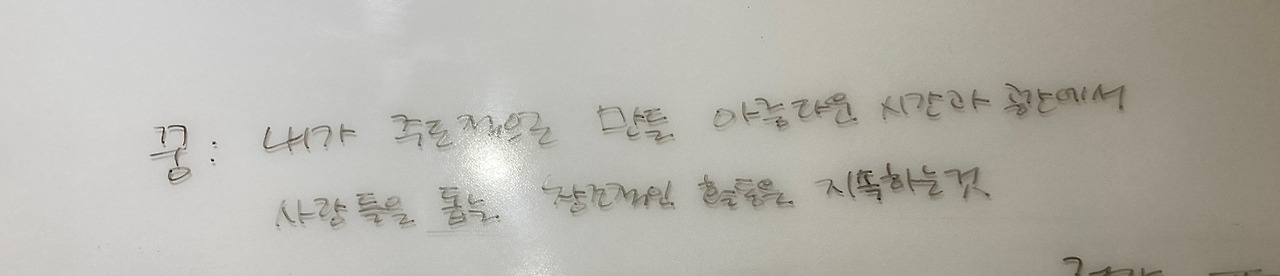 꿍: 내가 주도적으로 만들 아름다운 시간과 공간에서
사람들을 돕는 창조적인 활동을 지속하는것